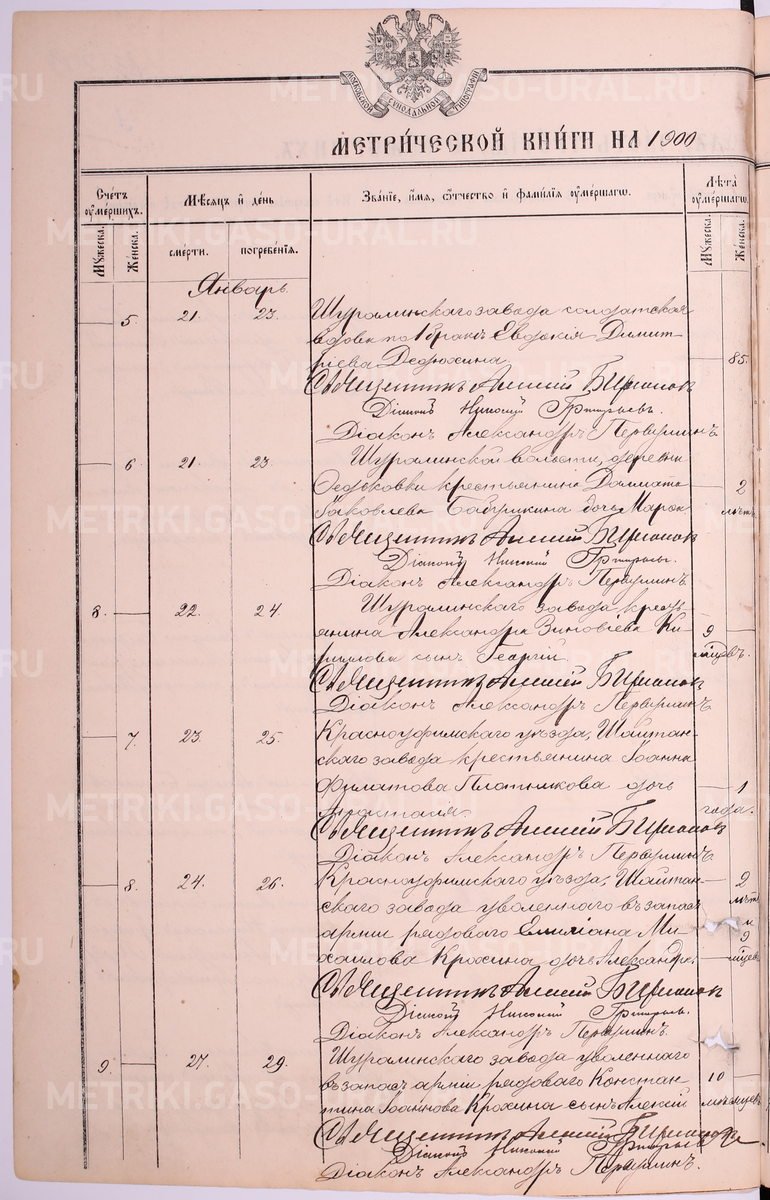 МОСКОВСКОЙ СѴНОДАЛЬНОЙ ТИПОГРАФІИ
МЕТРИ́ЧЕСКОЙ КНИ́ГИ НА 1900
Счетъ оумершихъ.
Мѣсяцъ и день
Званіе, имя, отчество и фамилія оумершагѡ.
Лѣта оумершагѡ.
Мужеска.
Женска.
смерти.
погребенія.
Мужеска.
Женска.
Январь.
5 21. 23. Шуралинскаго завода солдатская
вдова по 1 бракѣ Евдокія Димит-
ріева Дедюхина 85.
Священникъ Алексій Бирюковъ
Діаконъ Николай Григорьевъ.
Діаконъ Александръ Первушинъ
6 21. 23. Шуралинской волости, деревни
Федьковки крестьянина Далмата
Іаковлева Бабушкина дочь Марѳа 2 лѣтъ
Священникъ Алексій Бирюковъ
Діаконъ Николай Григорьевъ.
Діаконъ Александръ Первушинъ
8. 22. 24 Шуралинскаго завода кресть-
янина Александра Зиновіева Ки-
риллова сынъ Георгій 9 мѣсяцевъ.
Священникъ Алексій Бирюковъ
Діаконъ Александръ Первушинъ.
7. 23. 25. Красноуфимскаго уѣзда, Шайтан-
скаго завода крестьянина Іоанна
Филатова Плотникова дочь 1
Анастасія. года.
Священникъ Алексій Бирюковъ
Діаконъ Александръ Первушинъ.
8. 24. 26. Красноуфимскаго уѣзда, Шайтан- 2
скаго завода уволеннаго въ запасъ лѣтъ
арміи рядоваго Емиліана Ми- и 9
хаилова Крохина дочь Александра мѣсяцевъ
Священникъ Алексій Бирюковъ
Діаконъ Николай Григорьевъ.
Діаконъ Александръ Первушинъ.
9. 27. 29. Шуралинскаго завода уволеннаго
въ запасъ арміи рядоваго Констан- 10
тина Іоаннова Крохина сынъ Алексій мѣсяцевъ
Священникъ Алексій Бирюковъ
Діаконъ Николай Григорьевъ
Діаконъ Александръ Первушинъ.
METRIKI.GASO-URAL.RU